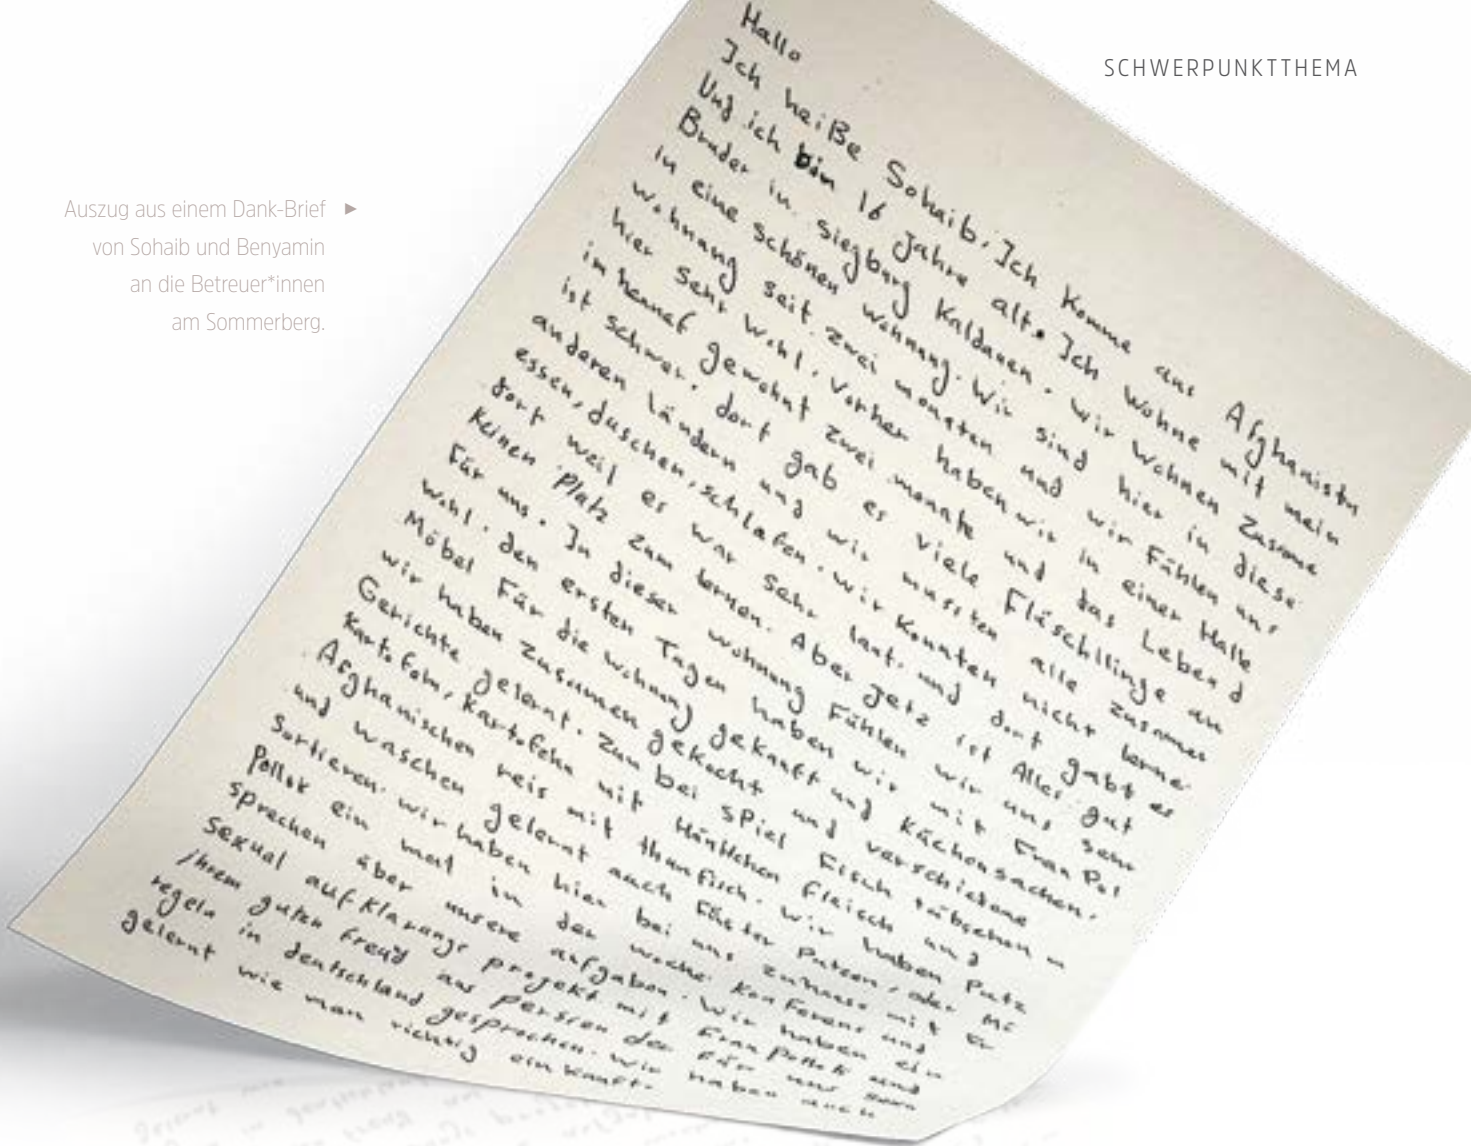 SCHWERPUNKTTHEMA
Auszug aus einem Dank-Brief ►
von Sohaib und Benyamin
an die Betreuer*innen
am Sommerberg.
Hallo
Ich heiße Sohaib. Ich komme aus Afghanistn
Und ich bin 16 Jahre alt. Ich wohne mit mein
Bruder in Siegburg Kaldauen. wir wohnen Zusame
in eine schönen wohnung. Wir sind hier in diese
wohnung seit zwei monaten und wir Fühlen uns
hier sehr wohl. Vorher haben wir in einer Halle
in hennef gewohnt zwei monate und das Leben d
ist schwer. dort gab es viele Fläschllinge an
anderen ländern und wir mussten alle zusamen
essen, duschen, schlafen. wir konnten nicht lerne
dort weil es war sehr laut. und dort gabt es
keinen Platz zum lernen. Aber jetz ist Alles gut
Für uns. In dieser wohnung Fühlen wir uns sehr
wohl. den ersten Tagen haben wir mit Frau Pol
Möbel Für die wohnung gekauft und küchensachen.
wir haben zusamen gekocht und verschiedene
Gerichte gelernt. Zum bei spiel Fisch
kartofeln mit Hänchen Fleisch und
Afghanischen reis mit thunfisch. wir haben Putz
und waschen gelernt auch Fäster Putzen, oder Mü
Sortieren. wir haben hier bei uns zuhause mit Fr
Pollok ein mal in der woche Konferenz und
sprechen über unsere aufgaben. Wir haben ein
sexual aufklärungs projekt mit Frau Pollok und
ihrem guten Freud aus persien der für uns
regeln in deutschland gesprochen. wir haben auch
gelernt wie man richtig einkauft.